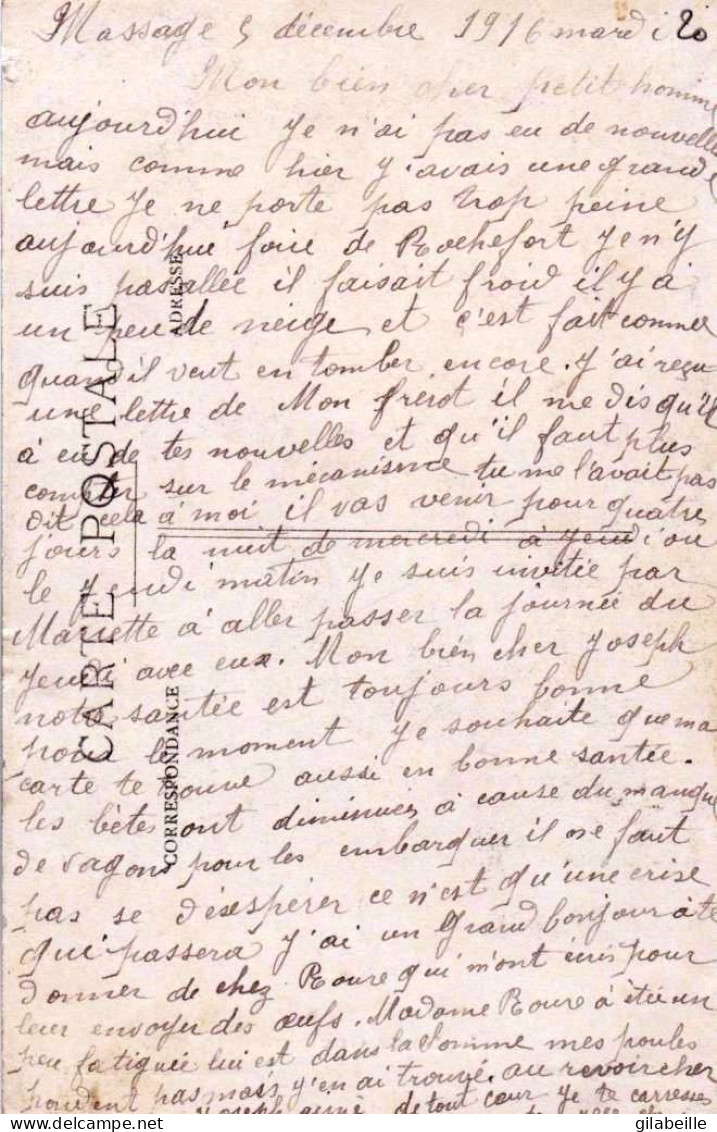 Massage 5 décembre 1916 mardi 20
Mon bien cher petit homme
aujourd'hui Je n'ai pas eu de nouvelle
mais comme hier J'avais une grande
lettre Je ne porte pas trop peine
aujourd'hui foire de Rochefort Je n'y
suis pas allée il faisait froid il y a
un peu de neige et c'est fait comme
quand il veut en tomber encore. J'ai reçu
une lettre de Mon frérot il me dis qu'il
à eu de tes nouvelles et qu'il faut plus
compter sur le mécanisme tu me l'avait pas
dit cela à moi il vas venir pour quatre
jours la nuit de mercredi à Jeudi ou
le Jeudi matin Je suis invitée par
Mariette à aller passer la journée du
Jeudi avec eux. Mon bien cher Joseph
notre santée est toujours bonne
pour le moment Je souhaite que ma
carte te trouve aussi en bonne santée.
les bêtes ont diminuées à cause du manque
de vagons pour les embarquer il ne faut
pas se désespérer ce n'est qu'une crise
qui passera J'ai un grand bonjour à te
donner de chez Roure qui m'ont écris pour
leur envoyer des œufs. Madame Roure à étée un
peu fatiguée lui est dans la Somme mes poules
pondent pas mais J'en ai trouvé. au revoir cher
Joseph aimé de tout cœur Je te carresse
CARTE POSTALE
CORRESPONDANCE
ADRESSE
gilabeille